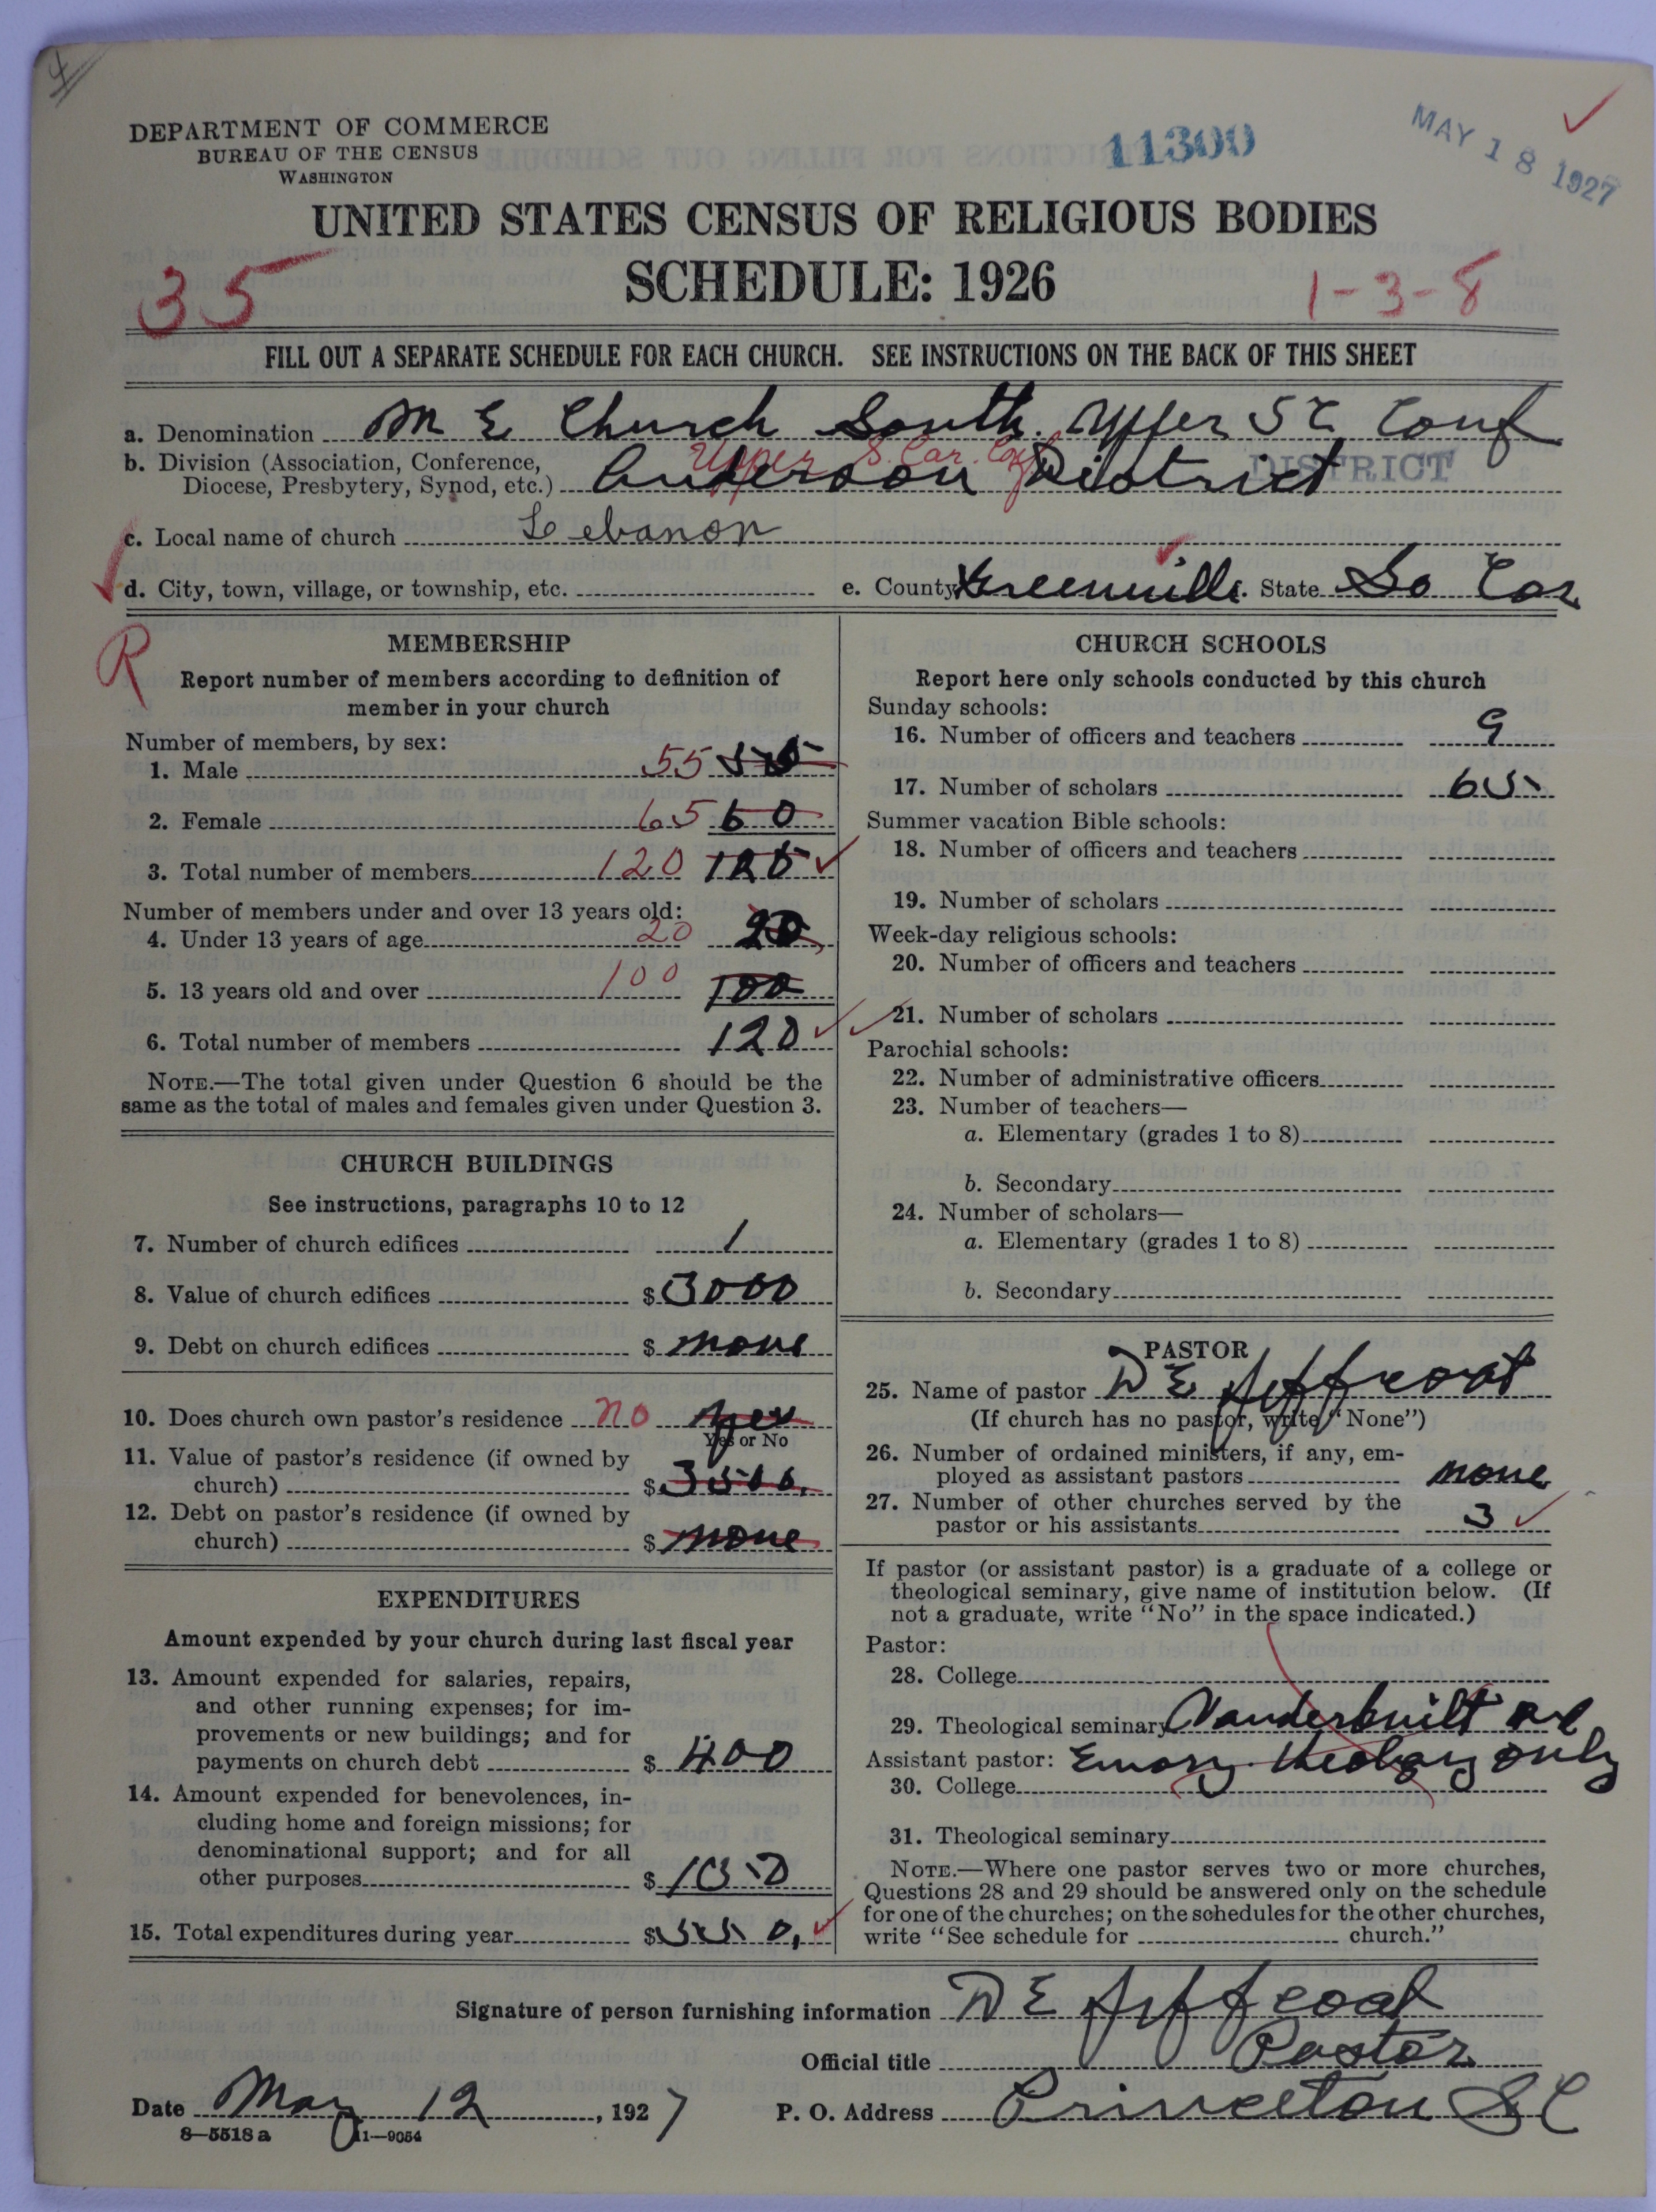 4
DEPARTMENT OF COMMERCE
BUREAU OF THE CENSUS
WASHINGTON
11300
MAY 18 1927
UNITED STATES CENSUS OF RELIGIOUS BODIES
SCHEDULE: 1926
35
1-3-8
FILL OUT A SEPARATE SCHEDULE FOR EACH CHURCH. SEE INSTRUCTIONS ON THE BACK OF THIS SHEET
a. Denomination M E Church South. Upper S C Conf
b. Division (Association, Conference, Upper S. Car. Conf
Diocese, Presbytery, Synod, etc.) Anderson District DISTRICT
c. Local name of church Lebanon
d. City, town, village, or township, etc. e. County Greenville. State So Car
R
MEMBERSHIP
Report number of members according to definition of
member in your church
Number of members, by sex:
1. Male 55
2. Female 65 60
3. Total number of members 120 120
Number of members under and over 13 years old:
4. Under 13 years of age 20 20
5. 13 years old and over 100 100
6. Total number of members 120
NOTE.—The total given under Question 6 should be the
same as the total of males and females given under Question 3.
CHURCH BUILDINGS
See instructions, paragraphs 10 to 12
7. Number of church edifices 1
8. Value of church edifices $ 3000
9. Debt on church edifices $ none
10. Does church own pastor's residence no yes
Yes or No
11. Value of pastor's residence (if owned by
church) $ 3500.
12. Debt on pastor's residence (if owned by
church) $ none
EXPENDITURES
Amount expended by your church during last fiscal year
13. Amount expended for salaries, repairs,
and other running expenses; for im-
provements or new buildings; and for
payments on church debt $ 400
14. Amount expended for benevolences, in-
cluding home and foreign missions; for
denominational support; and for all
other purposes $ 150
15. Total expenditures during year $ 550.
CHURCH SCHOOLS
Report here only schools conducted by this church
Sunday schools:
16. Number of officers and teachers 9
17. Number of scholars 65
Summer vacation Bible schools:
18. Number of officers and teachers
19. Number of scholars
Week-day religious schools:
20. Number of officers and teachers
21. Number of scholars
Parochial schools:
22. Number of administrative officers
23. Number of teachers—
a. Elementary (grades 1 to 8)
b. Secondary
24. Number of scholars—
a. Elementary (grades 1 to 8)
b. Secondary
PASTOR
25. Name of pastor D E Jeffcoat
(If church has no pastor, write "None")
26. Number of ordained ministers, if any, em-
ployed as assistant pastors none
27. Number of other churches served by the
pastor or his assistants 3
If pastor (or assistant pastor) is a graduate of a college or
theological seminary, give name of institution below. (If
not a graduate, write "No" in the space indicated.)
Pastor:
28. College
29. Theological seminary Vanderbuilt
Assistant pastor: Emory theology only
30. College
31. Theological seminary
NOTE.—Where one pastor serves two or more churches,
Questions 28 and 29 should be answered only on the schedule
for one of the churches; on the schedules for the other churches,
write "See schedule for church."
Signature of person furnishing information D E Jeffcoat
Official title Pastor
Date May 12, 1927 P. O. Address Princeton S C
8—5518 a 11—9054